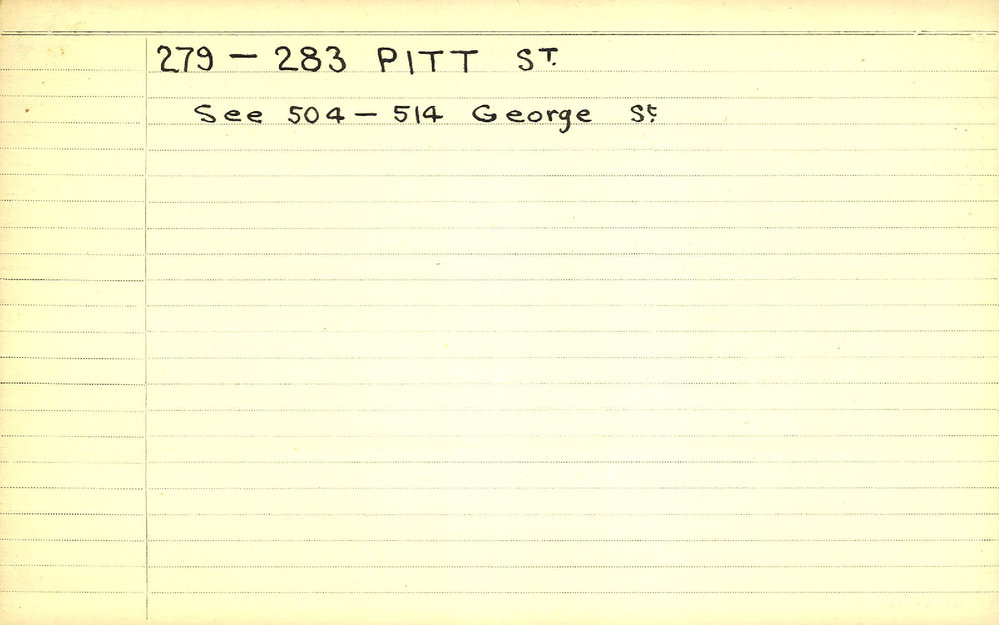 279 — 283 PITT ST.
See 504 — 514 George St.